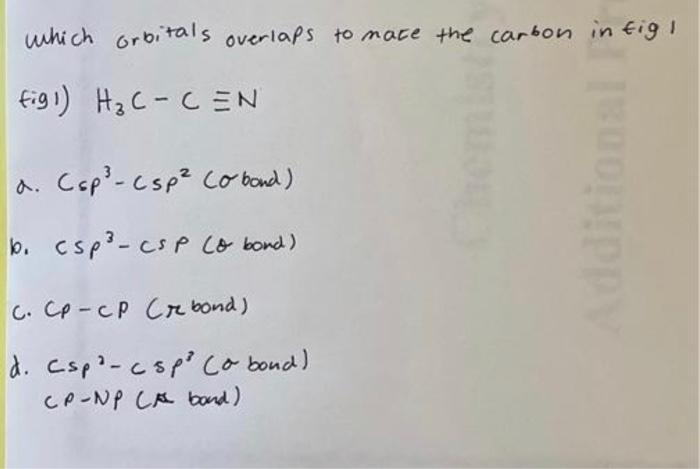 which orbitals overlaps to mace the carbon in fig 1
fig 1) H₃C - C ≡ N
a. Csp³ - Csp² (σ bond)
b. Csp³ - CsP (σ bond)
c. Cp - CP (π bond)
d. Csp³ - Csp³ (σ bond)
CP - NP (π bond)
Chemistry
Additional Pr